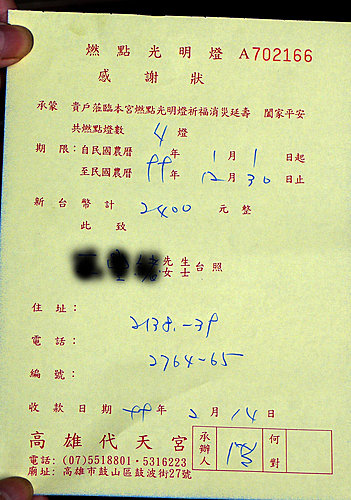 燃點光明燈 A702166
感謝狀
承蒙 貴戶蒞臨本宮燃點光明燈祈福消災延壽 闔家平安
共燃點燈數 4 燈
期限：自民國農曆 99 年 1 月 1 日起
至民國農曆 99 年 12 月 30 日止
新台幣計 2400 元整
此致
先生
女士 台照
住址：
2138.-39
電話：
2764-65
編號：
收款日期 99 年 2 月 14 日
高雄代天宮
承辦人
何
對
電話：(07)5518801・5316223
廟址：高雄市鼓山區鼓波街27號